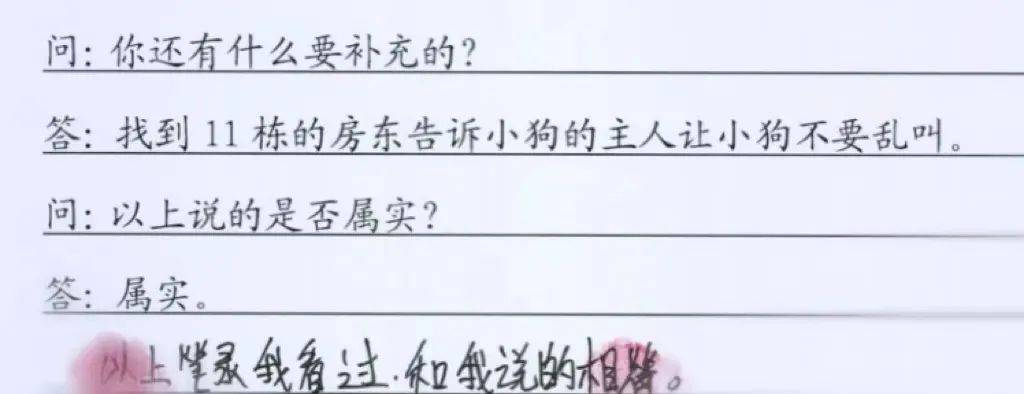 问：你还有什么要补充的？
答：找到 11 栋的房东告诉小狗的主人让小狗不要乱叫。
问：以上说的是否属实？
答：属实。
以上笔录我看过.和我说的相符。